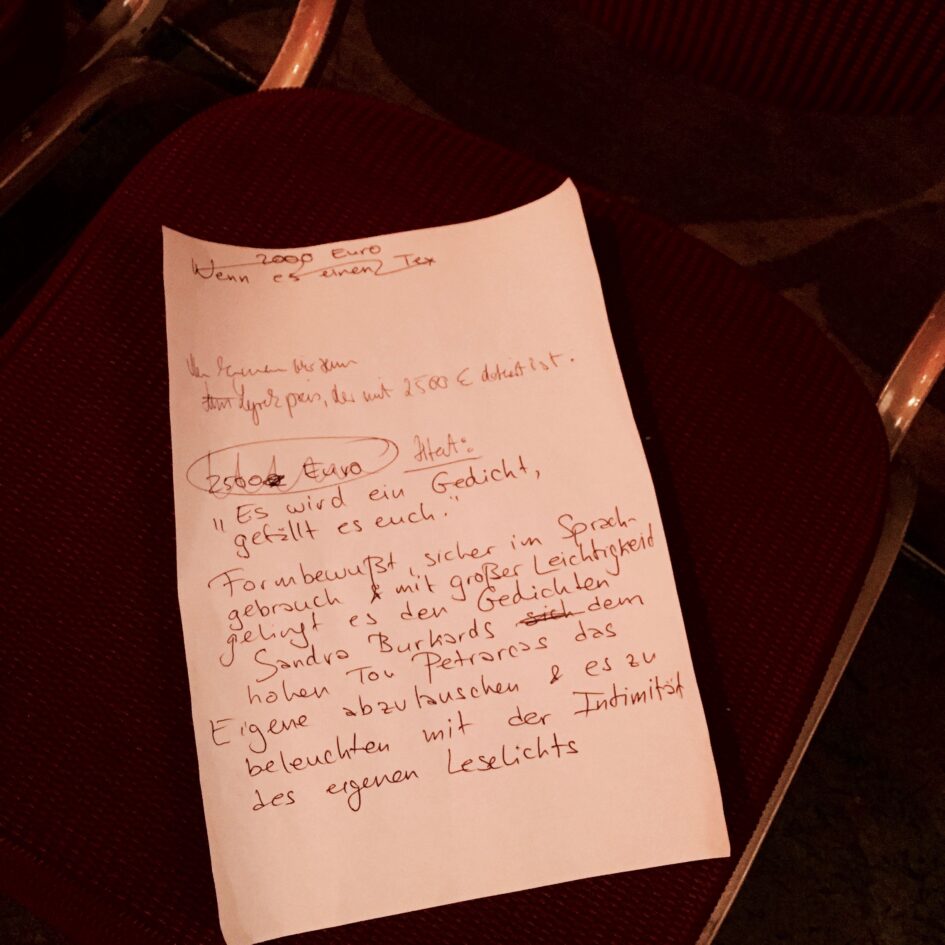 2000 Euro
Wenn es einen Tex
Wir kommen bis zum
Lyrikpreis, der mit 2500 € dotiert ist.
2500 Euro Zitat:
"Es wird ein Gedicht,
gefällt es euch."
Formbewußt, sicher im Sprach-
gebrauch & mit großer Leichtigkeid
gelingt es den Gedichten
Sandra Burkards sich dem
hohen Ton Petrarcas das
Eigene abzulauschen & es zu
beleuchten mit der Intimität
des eigenen Leselichts